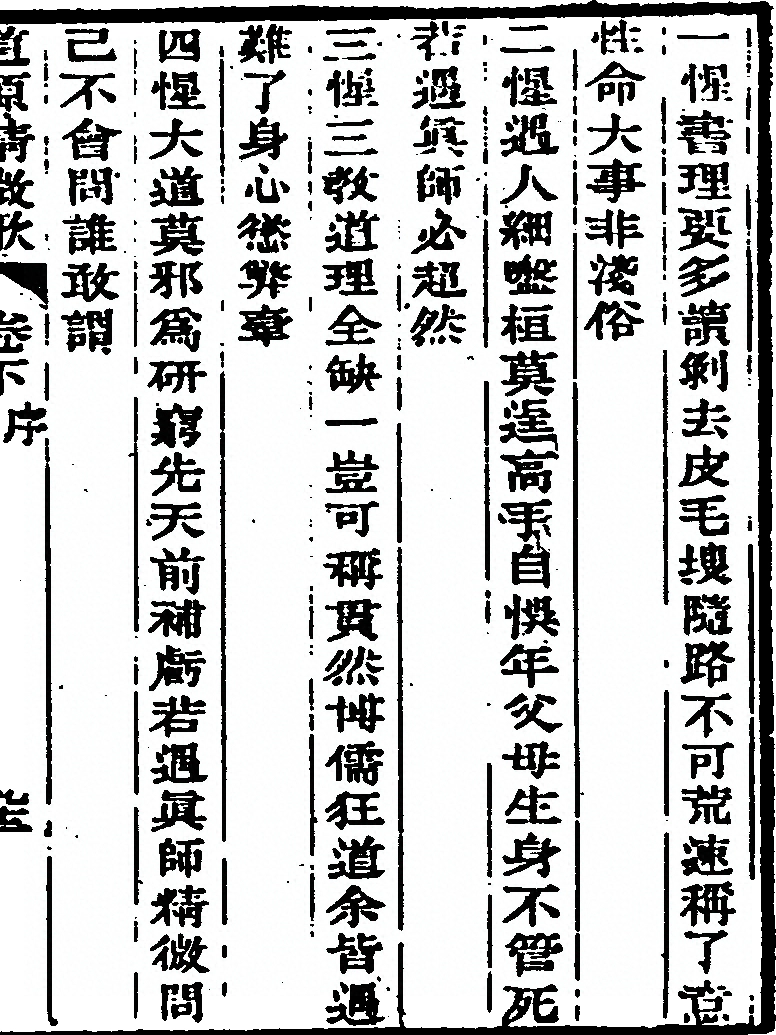 一惺書理要多讀剝去皮毛搜隨路不可荒速稱了意
性命大事非淺俗
二惺遇人細盤桓莫逞高手自悞年父母生身不管死
若遇眞師必超然
三惺三教道理全缺一豈可稱貫然博儒狂道余皆遇
難了身心愆弊章
四惺大道莫邪爲研窮先天前補虧若遇眞師精微問
己不會問誰敢謂
道原精微歌 卷下 序